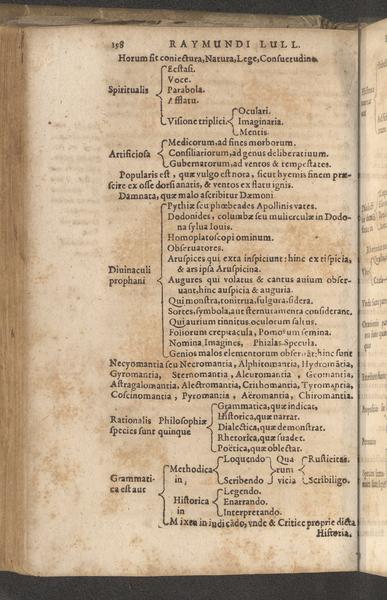 198 RAYMUNDI LULL.
Horum sit coniectura, Natura, Lege, Consuetudine.
Spiritualis
Ecstasi.
Voce.
Parabola.
Afflatu.
Visione triplici.
Oculari.
Imaginaria.
Mentis.
Artificiosa
Medicorum, ad fines morborum.
Consiliariorum, ad genus deliberatiuum.
Gubernatorum, ad ventos & tempestates.
Popularis est, quæ vulgo est nota, sicut hyemis finem præ-
scire ex osse dorsi anatis, & ventos ex flatu ignis.
Damnata, quæ malo ascribitur Dæmoni.
Diuinaculi
prophani
Pythiæ seu phœbades Apollinis vates.
Dodonides, columbæ seu mulierculæ in Dodo-
na sylua Iouis.
Homoplatoscopi ominum.
Obseruatores.
Aruspices qui exta inspiciunt: hinc extispicia,
& ars ipsa Aruspicina.
Augures qui volatus & cantus auium obser-
uant, hinc auspicia & auguria.
Qui monstra, tonitrua, fulgura, sidera.
Sortes, symbola, aut sternutamenta considerant.
Qui aurium tinnitus, oculorum saltus.
Foliorum crepitacula, Pomorum semina.
Nomina, Imagines, Phialas, Specula.
Genios malos elementorum obseruāt; hinc sunt
Necyomantia seu Necromantia, Alphitomantia, Hydromātia,
Gyromantia, Sternomantia, Aleuromantia, Geomantia,
Astragalomantia, Alectromantia, Crithomantia, Tyromantia,
Coscinomantia, Pyromantia, Aëromantia, Chiromantia.
Rationalis Philosophiæ
species sunt quinque
Grammatica, quæ indicat,
Historica, quæ narrat.
Dialectica, quæ demonstrat.
Rhetorica, quæ suadet.
Poëtica, quæ oblectat.
Grammati-
ca est aut
Methodica
in,
Loquendo
Scribendo
Quo
rum
vicia
Rusticitas.
Scribiligo.
Historica
in
Legendo.
Enarrando.
Interpretando.
Mixta in iudicādo, vnde & Critice proprie dicta
Historia.